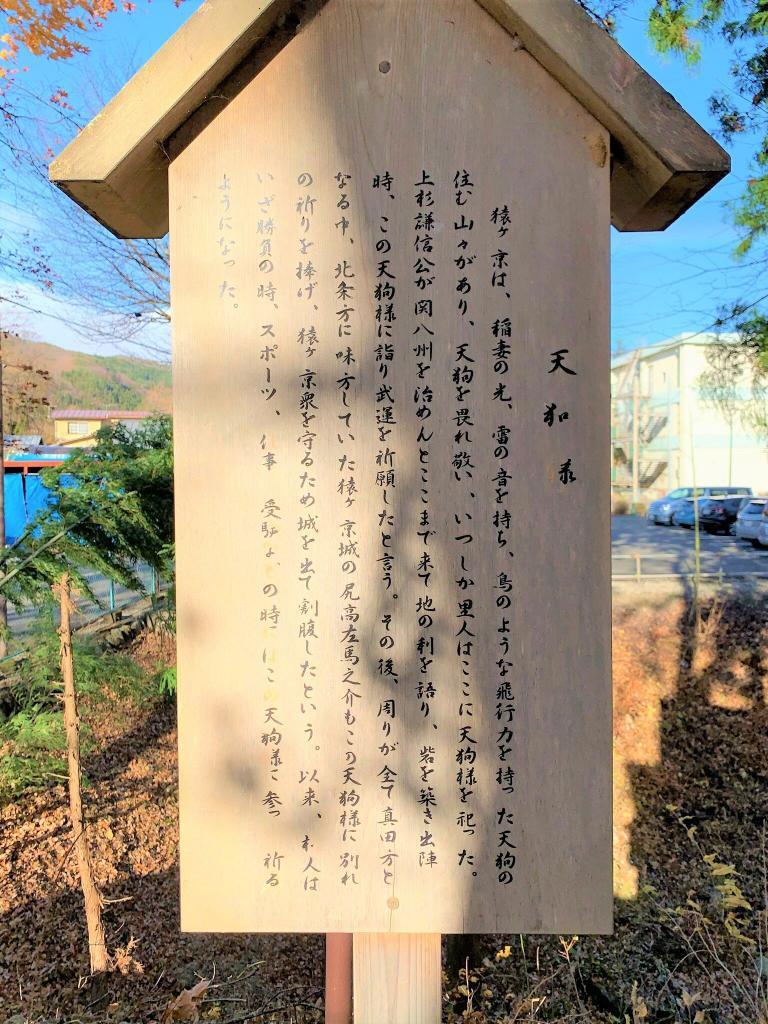 天狗様
猿ヶ京は、稲妻の光、雷の音を持ち、鳥のような飛行力を持った天狗の
住む山々があり、天狗を畏れ敬い、いつしか里人はここに天狗様を祀った。
上杉謙信公が関八州を治めんとここまで来て地の利を語り、砦を築き出陣
時、この天狗様に詣り武運を祈願したと言う。その後、周りが全て真田方と
なる中、北条方に味方していた猿ヶ京城の尻高左馬之介もこの天狗様に別れ
の祈りを捧げ、猿ヶ京衆を守るため城を出て割腹したという。以来、村人は
いざ勝負の時、スポーツ、仕事 受験などの時にはこの天狗様に参っ 祈る
ようになった。